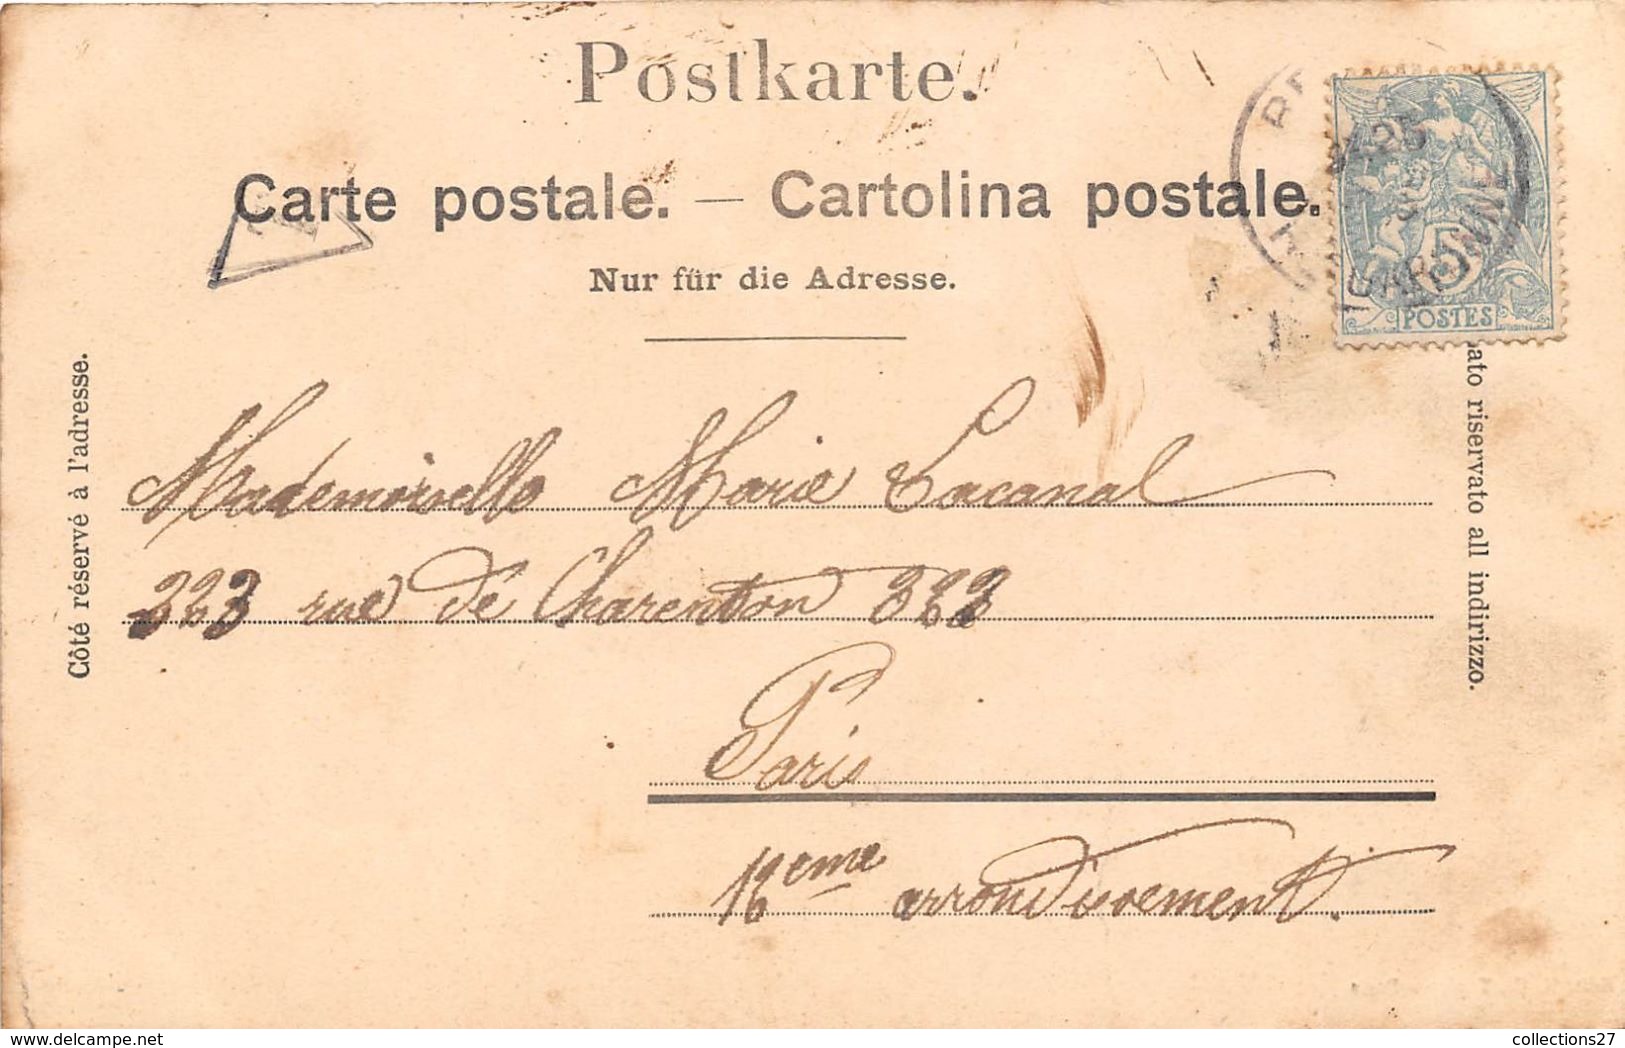 Postkarte.
Carte postale. — Cartolina postale.
Nur für die Adresse.
Côté réservé à l'adresse.
ato riservato all indirizzo.
25
5
POSTES
Mademoiselle Marie Lacanal
223 rue de Charenton 223
Paris
12eme arrondissement.
www.delcampe.net
collections27